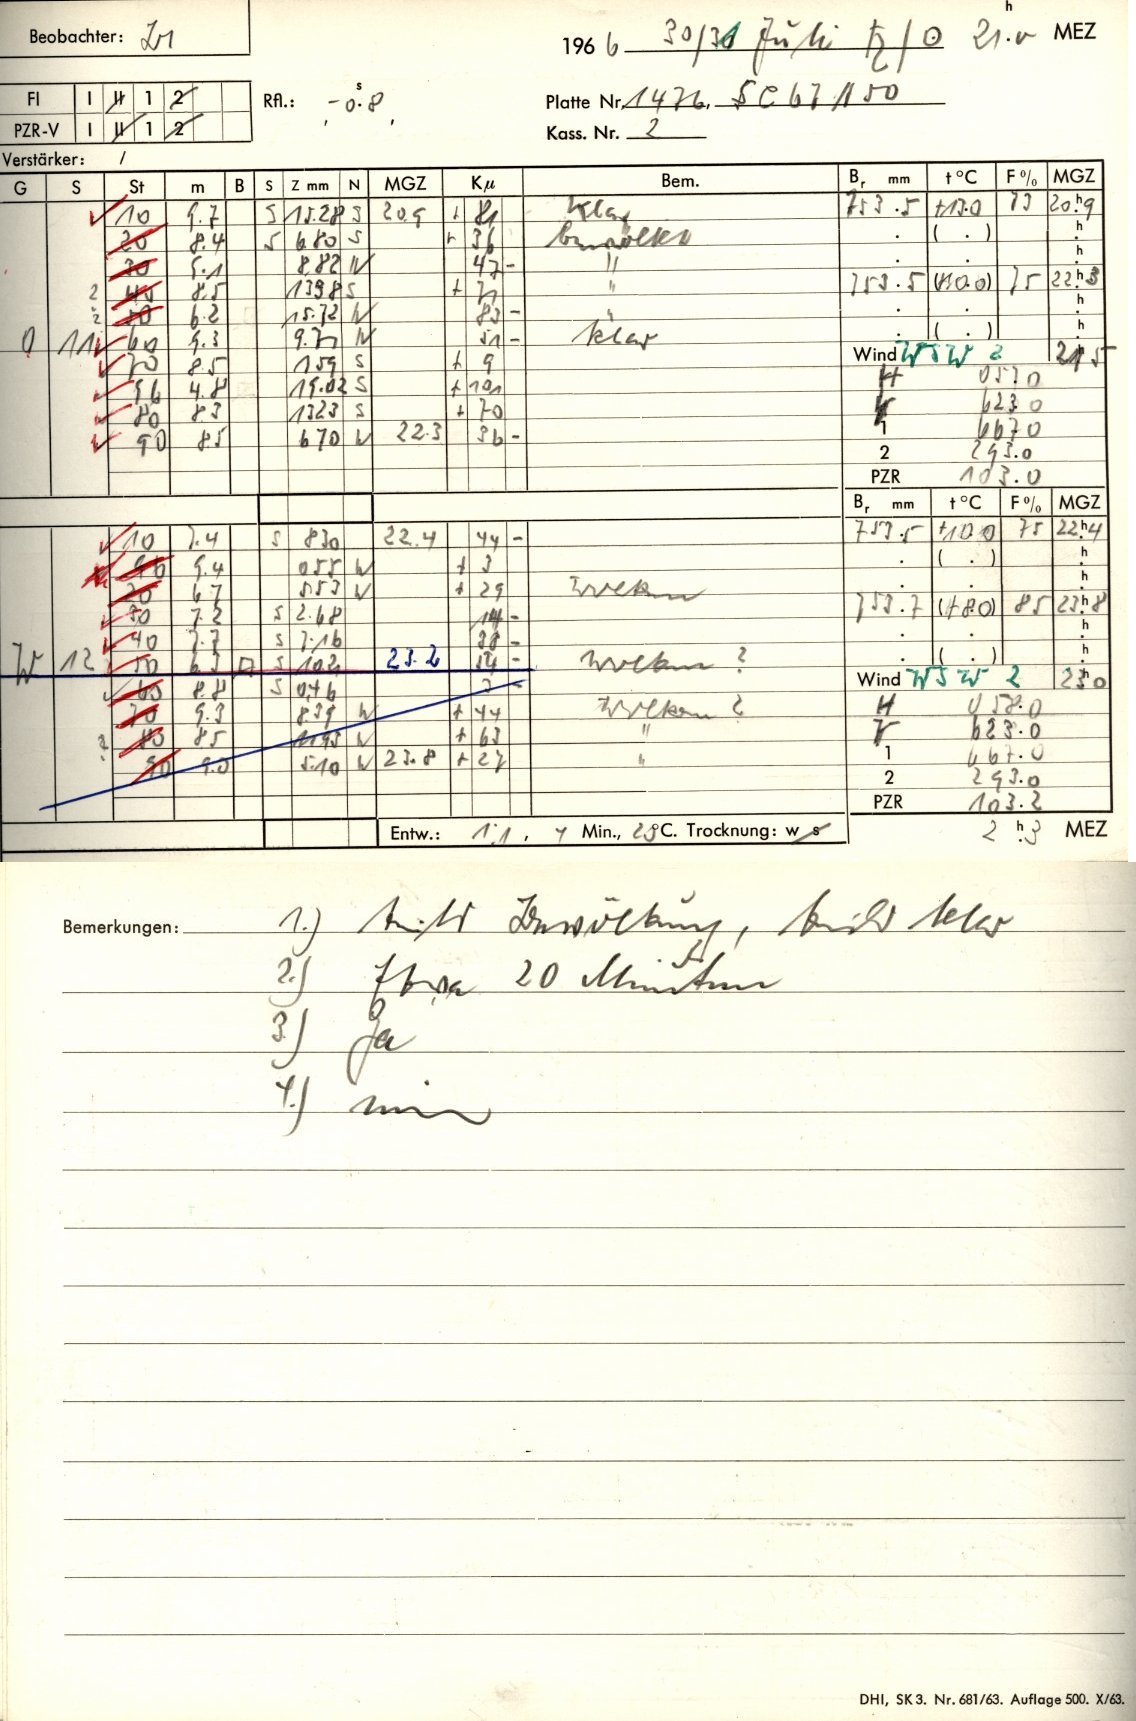 Beobachter:
1966 30/31 Juli tz/0 21.0 h MEZ
FI I II 1 2
PZR-V I II 1 2
Rfl.: -0.8 s
Platte Nr. 1476.
Kass. Nr. 2
Verstärker: /
G S St m B S Z mm N MGZ Kμ Bem.
Br mm t °C F % MGZ
10 9.7 S 15.28 S 20.9 + 81 klar
753.5 +13.0 73 20.h9
20 8.4 S 6.80 S + 36 bewölkt
. ( . ) h
30 5.1 8.82 W 47 - "
. h
2 40 8.5 1398 S + "
753.5 (+10.0) 75 22.h3
2 50 6.2 15.72 W 83 -
. h
0 11 60 9.3 W 51 - klar
. ( . ) h
70 8.5 159 S + 9
Wind WSW 2 21h5
96 4.8 19.02 S + 101
H 057.0
80 8.3 1323 S + 70
V 623.0
90 8.5 670 W 22.3 36 -
1 667.0
2 293.0
PZR 103.0
Br mm t °C F % MGZ
10 7.4 S 830 22.4 44 -
753.5 +10.0 75 22.h4
9.4 055 W + 3
. ( . ) h
20 6.7 553 W + 29 Wolken
. h
30 7.2 S 2.68 14 -
753.7 (+8.0) 85 23.h8
40 7.7 S 7.16 38 -
. h
W 12 50 6.3 S 23.2 54 - Wolken ?
. ( . ) h
60 8.8 S 046 3 -
Wind WSW 2 23h0
70 9.3 839 W + 44 Wolken ?
H 058.0
? 80 8.5 1193 W + 63 "
V 623.0
90 9.0 5.10 W 23.8 + 27 "
1 667.0
2 293.0
PZR 103.2
Entw.: 1:1, 4 Min., 23 C. Trocknung: w s
2 h.3 MEZ
Bemerkungen: 1.) teils Bewölkung, teils klar
2.) Etwa 20 Minuten
3.) Ja
4.) nein
DHI, SK 3. Nr. 681/63. Auflage 500. X/63.